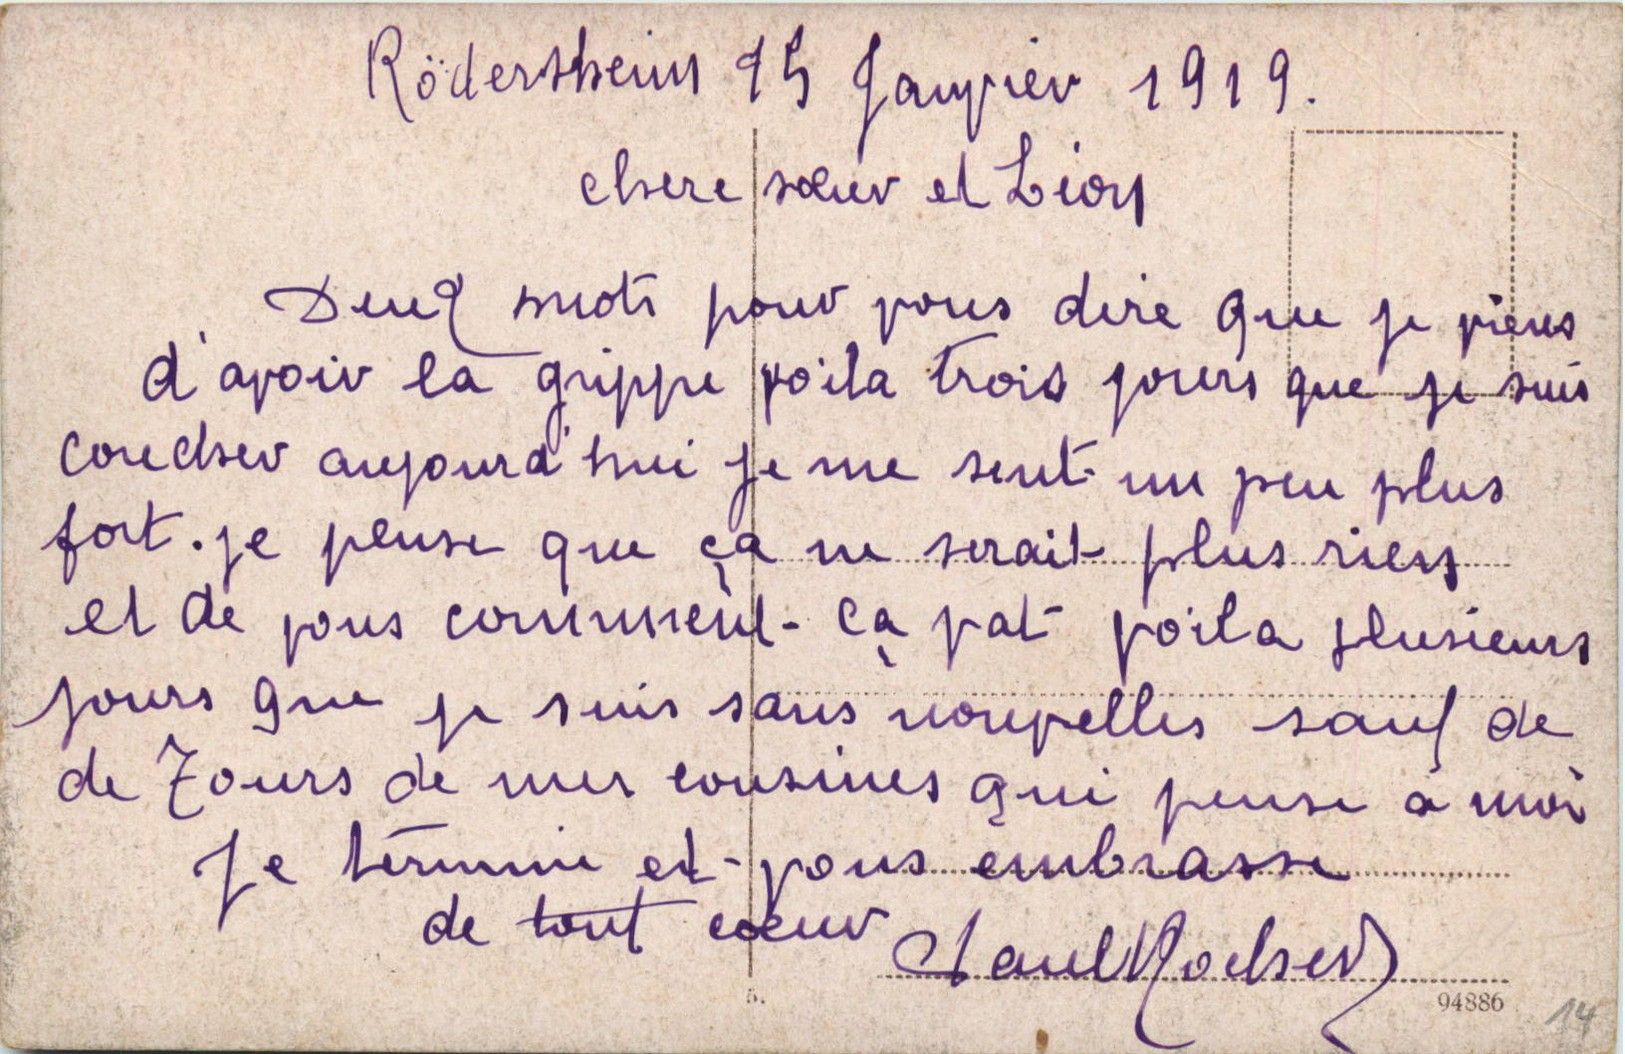 Rödersheim 15 Janvier 1919.
chere sœur et Léon
Deux mots pour vous dire que je viens
d'avoir la grippe voila trois jours que je suis
coucher aujourd'hui je me sent un peu plus
fort. je pense que ça ne serait plus rien
et de vous comment ça vat voila plusieurs
jours que je suis sans nouvelles sauf de
de Tours de mes cousines qui pense à moi
Je termine et vous embrasse
de tout cœur Paul
5.
94886
14